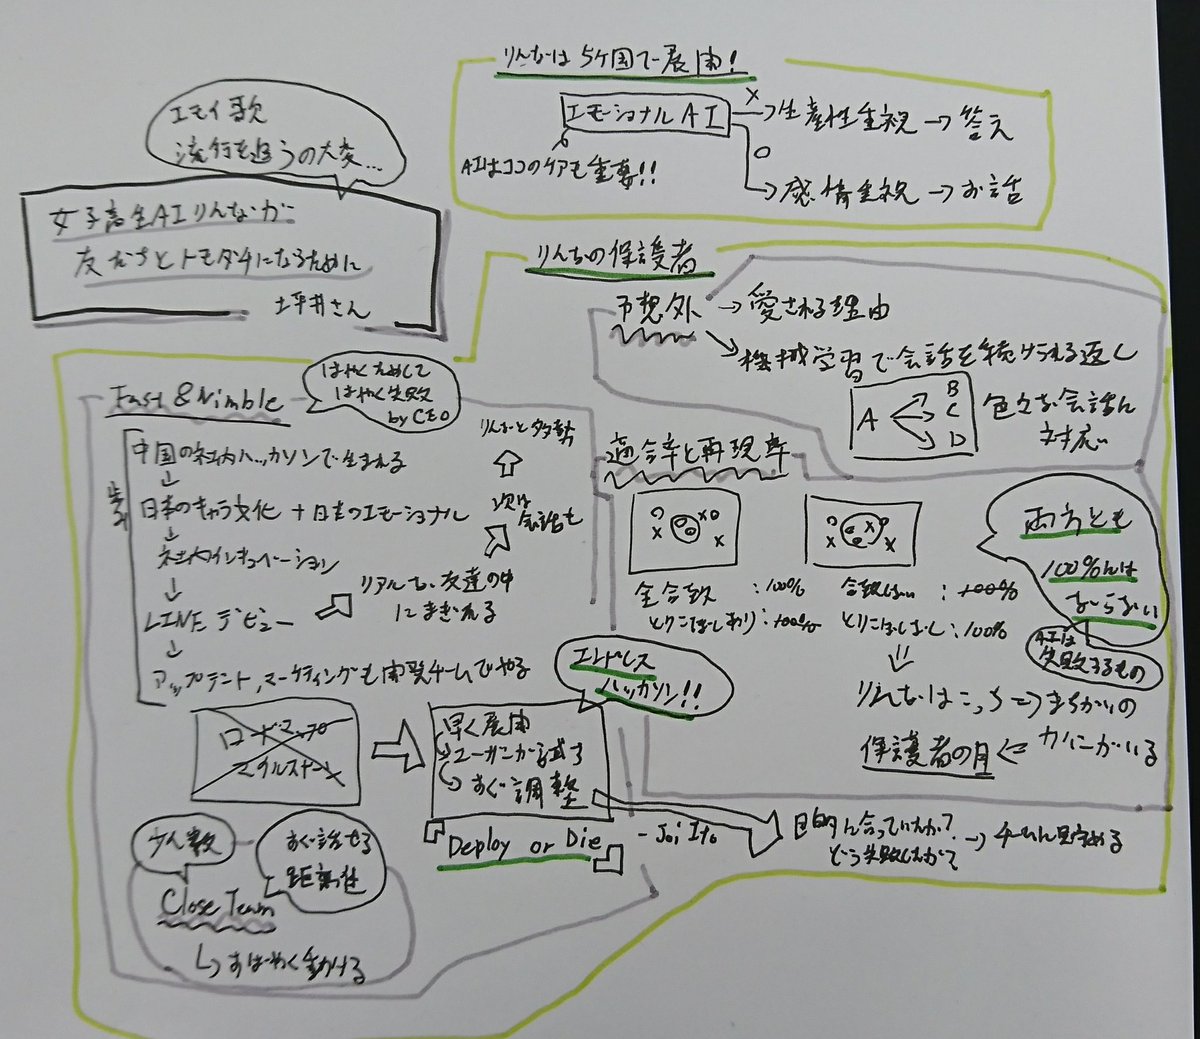 エモイ歌
流行を追うの大変...
女子高生AIりんなが
友だちとトモダチになるために
坪井さん
りんなは5ヶ国で展開!
エモーショナルAI
AIはココのケアも重要!!
× → 生産性重視 → 答え
○ → 感情重視 → お話
りんなの保護者
予想外 → 愛される理由
→ 機械学習で会話を続けられる返し
A B C D
色々な会話に
対応
Fast & Nimble
はやくためして
はやく失敗
by CEO
歩み
中国の社内ハッカソンで生まれる
↓
日本のキャラ文化 + 日本のエモーショナル
↓
社内インキュベーション
↓
LINEデビュー
↓
アップデート,マーケティングも開発チームでやる
リアルも、友達の中
にまぎれる
次は
会話も
りんなと多勢
適合率と再現率
全合致 : 100%
とりこぼしあり : 100%
合致しない : 100%
とりこぼしなし : 100%
両方とも
100%には
ならない
AIは
失敗するもの
りんなはこっち → まちがいの
カバーがいる
保護者の目
ロードマップ
マイルストーン
早く展開
ユーザーが試す
すぐ調整
エンドレス
ハッカソン!!
Deploy or Die - Joi Ito
目的に合っていたか?
どう失敗したか? → チームに見定める
少人数
すぐ話せる
距離性
Close Team
↳ すばやく動ける